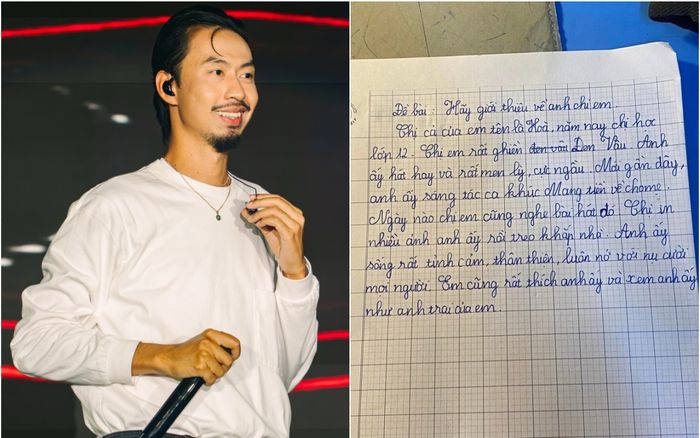 Đề bài: Hãy giới thiệu về anh chị em.
Chị cả của em tên là Hoà, năm nay chị học
lớn 12. Chị em rất ghiền đen vâu Đen Vâu. Anh
ấy hát hay và rất men lỳ, cực ngầu. Mới gần đây,
anh ấy sáng tác ca khúc Mang tiền về chome.
Ngày nào chị em cũng nghe bài hát đó. Chị in
nhiều ảnh anh ấy rồi treo khắp nhà. Anh ấy
sống rất tình cảm, thân thiên, luôn nở với nụ cười
mọi người. Em cũng rất thích anh ấy và xem anh ấy
như anh trai của em.